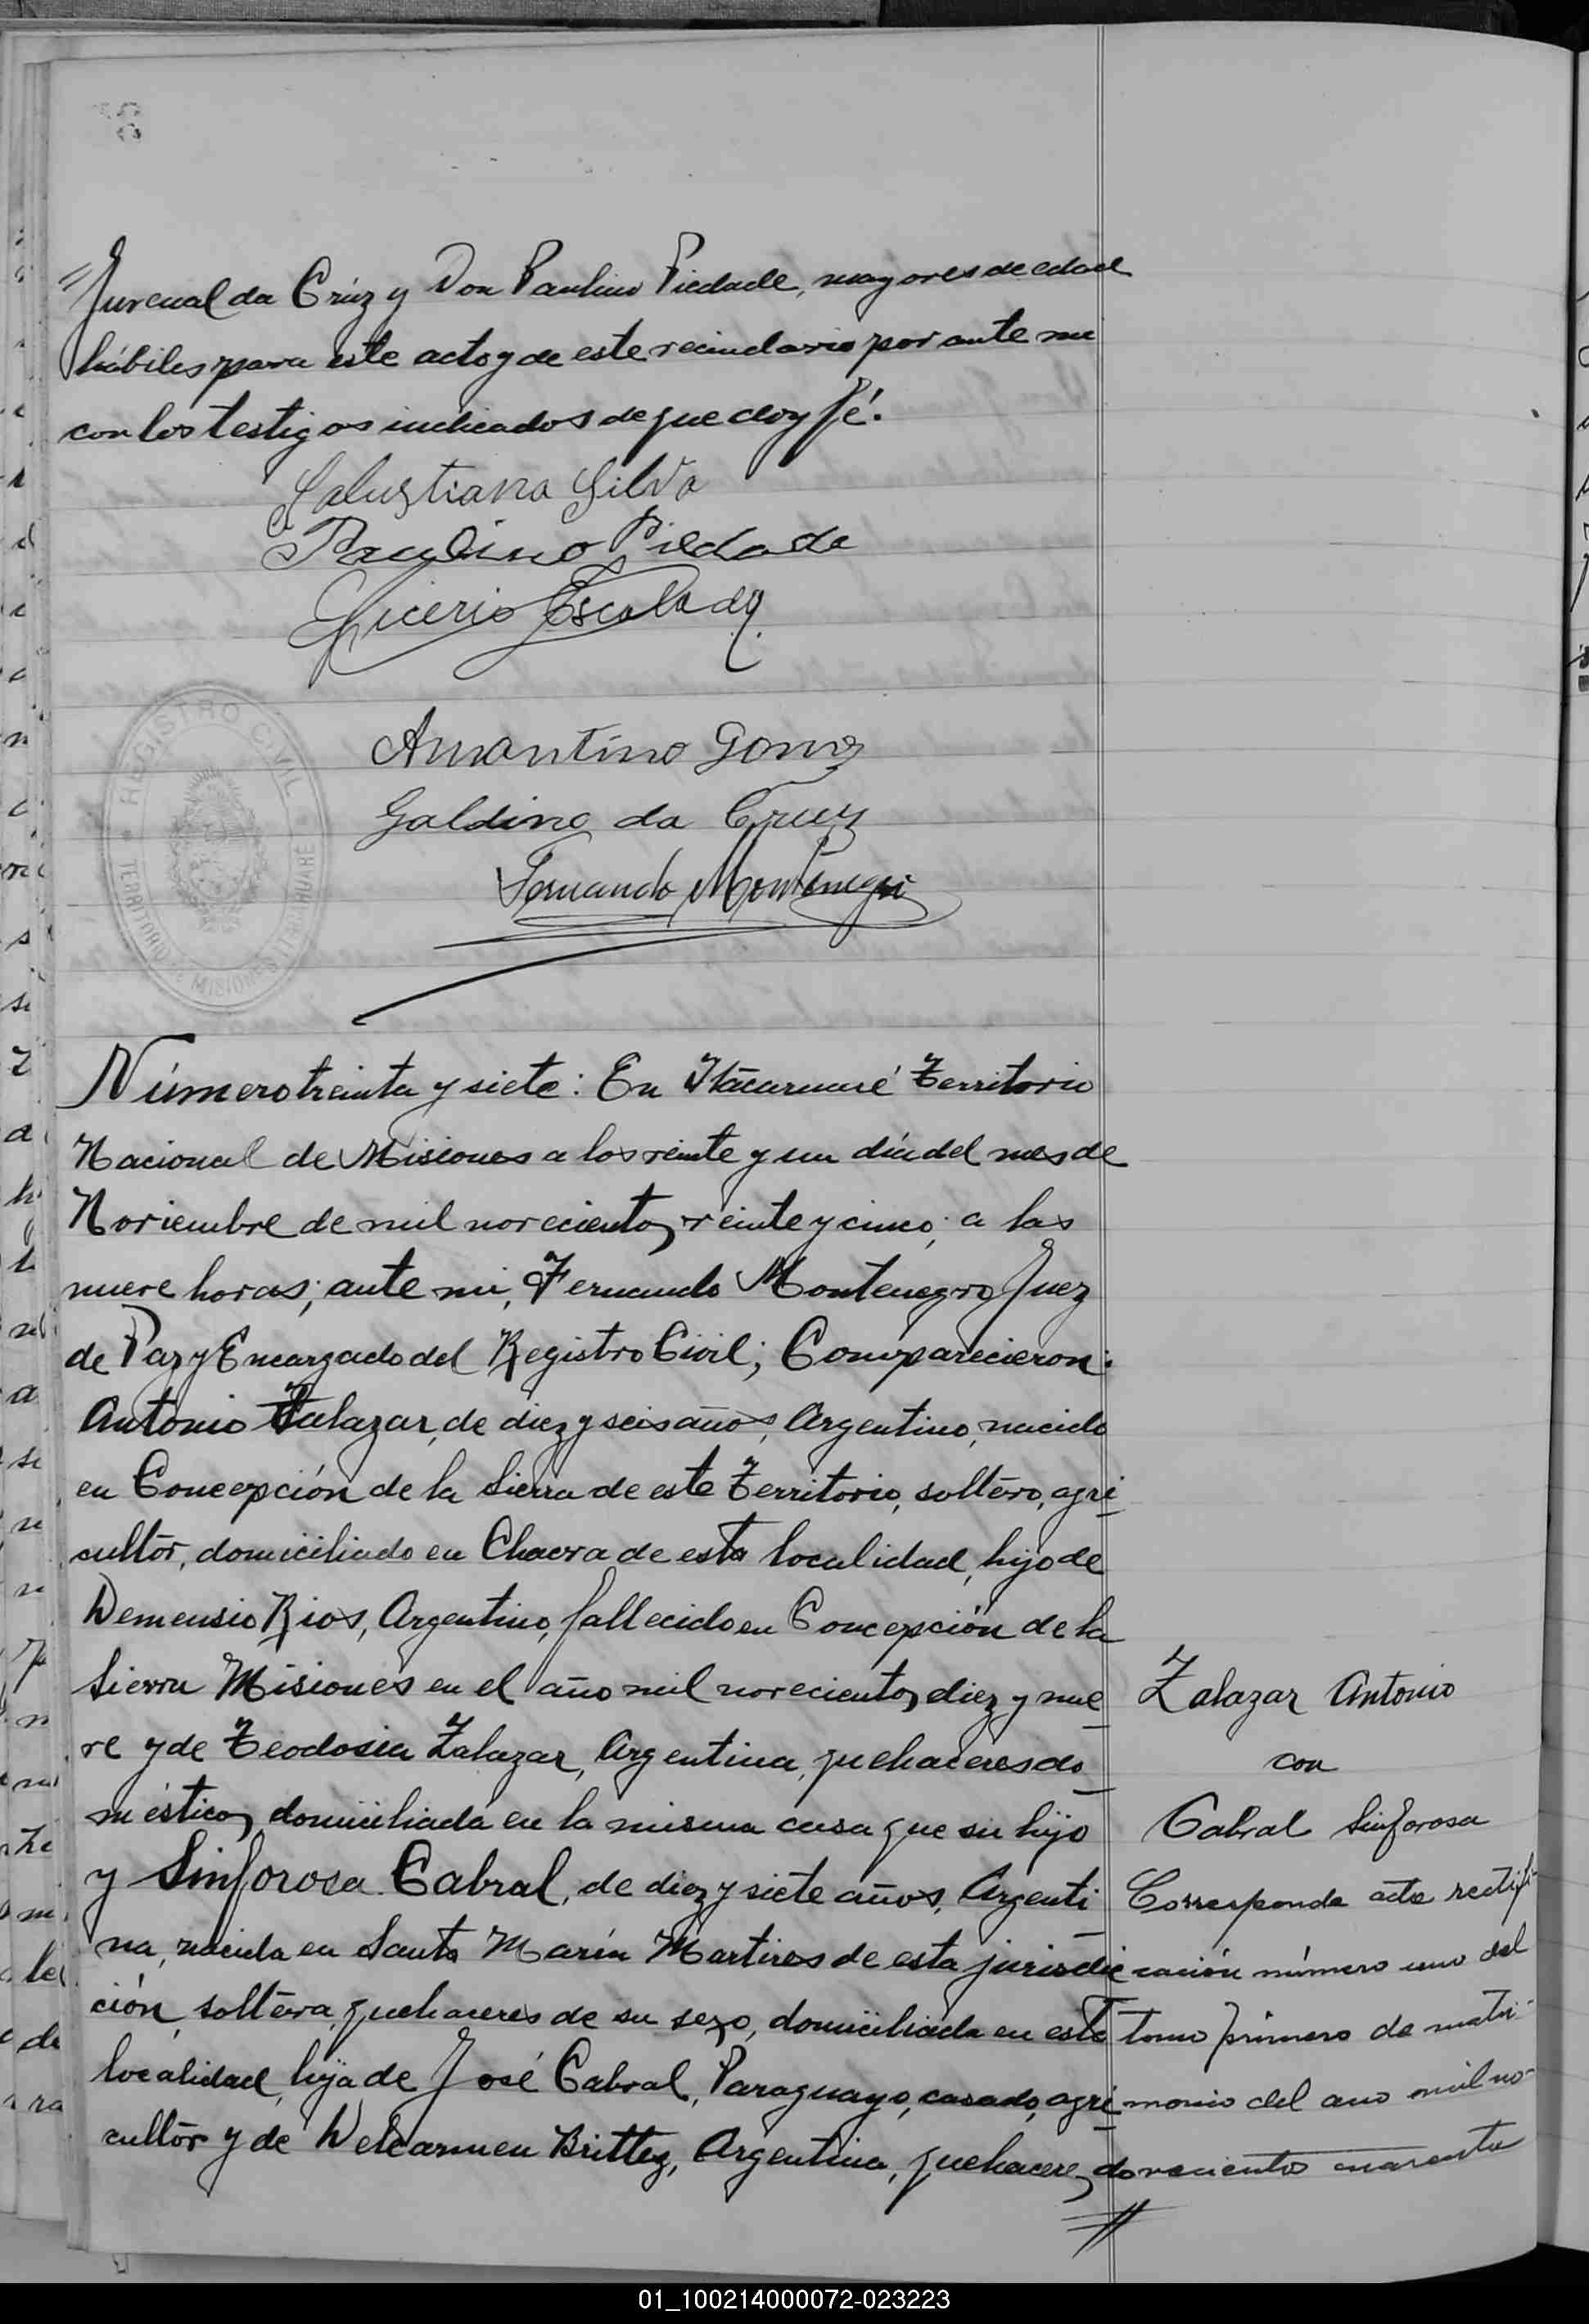 "Juvenal da Crúz y Don Paulino Piedade, mayores de edad
hábiles para este acto y de este vecindario por ante mi
con los testigos indicados de que doy fé.
Salustiana Silva
Paulino Piedade
Glicerio Escalada
Amantino Gomz
Galdino da Cruz
Fernando Montenegro
REGISTRO CIVIL
TERRITORIO MISIONES
Número treinta y siete: En Itácaruaré Territorio
Nacional de Misiones a los veinte y un día del mes de
Noviembre de mil novecientos veinte y cinco; a las
nueve horas; ante mi, Fernando Montenegro Juez
de Paz y Encargado del Registro Civil; Comparecieron:
Antonio Zalazar, de diez y seis años, Argentino, nacido
en Concepción de la Sierra de este Territorio, soltero, agri
cultor, domiciliado en Chacra de esta localidad, hijo de
Demensio Rios, Argentino, fallecido en Concepción de la
Sierra Misiones en el año mil novecientos diez y nue
ve y de Teodosia Zalazar, Argentina, quehaceres do
mésticos domiciliada en la misma casa que su hijo
y Sinforosa Cabral, de diez y siete años, Argenti
na, nacida en Santa María Martires de esta jurisdic
ción, soltera, quehaceres de su sexo, domiciliada en esta
localidad, hija de José Cabral, Paraguayo, casado, agri
cultor y de Delcarmen Brittez, Argentina, quehaceres do
Zalazar Antonio
con
Cabral Sinforosa
Corresponde acta rectifi-
cación número uno del
tomo primero de matri-
monio del año mil no-
veciento cuarenta
01_100214000072-023223